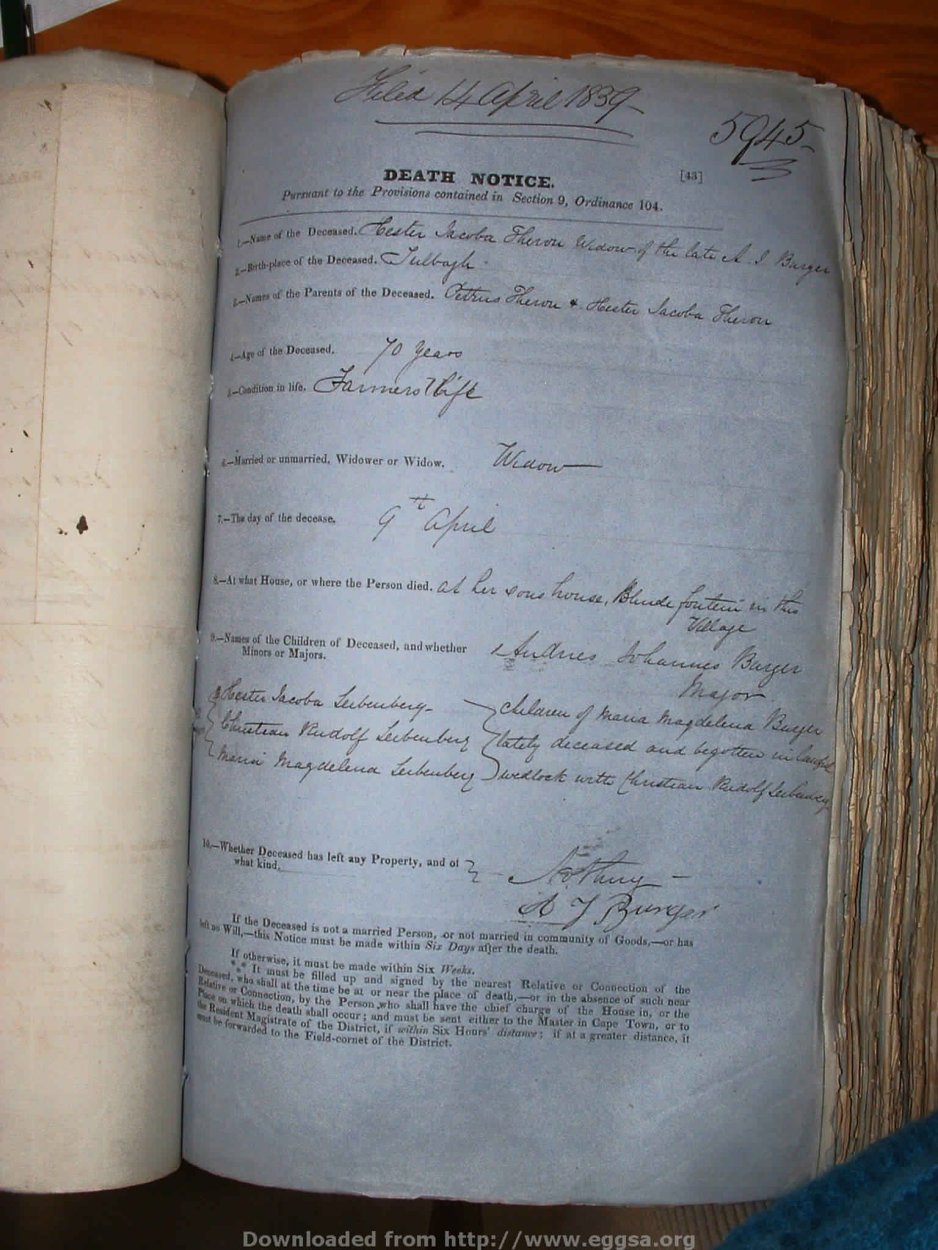 Filed 14 April 1839
5945
DEATH NOTICE.
[43]
Pursuant to the Provisions contained in Section 9, Ordinance 104.
1.—Name of the Deceased. Hester Jacoba Theron Widow of the late A. J. Burger
2.—Birth-place of the Deceased. Tulbagh
3.—Names of the Parents of the Deceased. Petrus Theron & Hester Jacoba Theron
4.—Age of the Deceased. 70 Years
5.—Condition in life. Farmers Wife
6.—Married or unmarried, Widower or Widow. Widow
7.—The day of the decease. 9th April
8.—At what House, or where the Person died. at her sons house, fontein in this
Village
9.—Names of the Children of Deceased, and whether Andries Johannes Burger
Minors or Majors. Major
Hester Jacoba Leibenberg children of Maria Magdelena Burger
Christian Rudolf Leibenberg lately deceased and begotten in lawful
Maria Magdelena Leibenberg wedlock with Christian Rudolf Leibenberg
10.—Whether Deceased has left any Property, and of
what kind. Nothing
A J Burger
If the Deceased is not a married Person, or not married in community of Goods,—or has
left no Will,—this Notice must be made within Six Days after the death.
If otherwise, it must be made within Six Weeks.
*** It must be filled up and signed by the nearest Relative or Connection of the
Deceased, who shall at the time be at or near the place of death,—or in the absence of such near
Relative or Connection, by the Person who shall have the chief charge of the House in, or the
Place on which the death shall occur; and must be sent either to the Master in Cape Town, or to
the Resident Magistrate of the District, if within Six Hours' distance; if at a greater distance, it
must be forwarded to the Field-cornet of the District.
Downloaded from http://www.eggsa.org